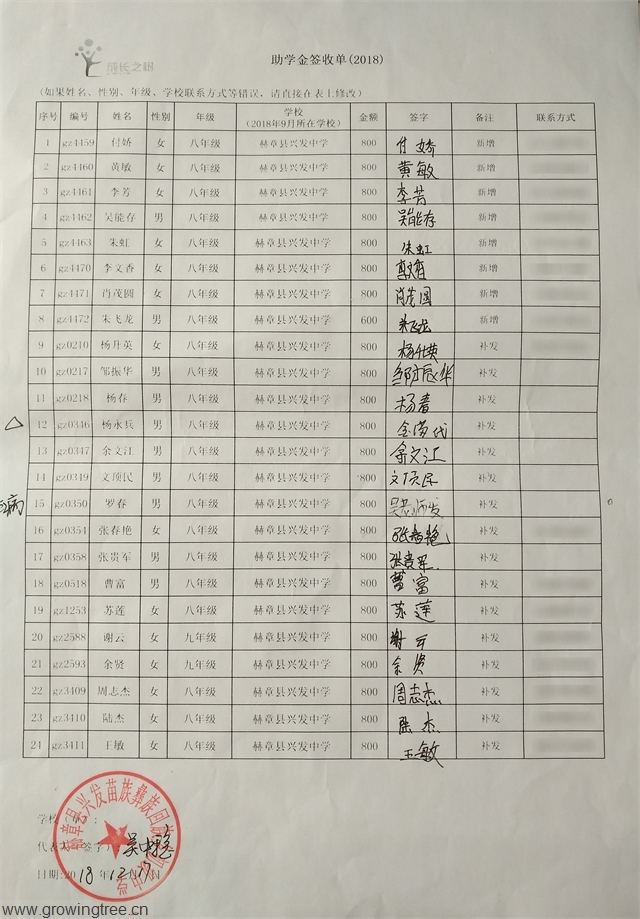 成长之树
助学金签收单(2018)
(如果姓名、性别、年级、学校联系方式等错误，请直接在表上修改)
序号 编号 姓名 性别 年级 学校 (2018年9月所在学校) 金额 签字 备注 联系方式
1 gz4459 付娇 女 八年级 赫章县兴发中学 800 付娇 新增
2 gz4460 黄敏 女 八年级 赫章县兴发中学 800 黄敏 新增
3 gz4461 李芳 女 八年级 赫章县兴发中学 800 李芳 新增
4 gz4462 吴能存 男 八年级 赫章县兴发中学 800 吴能存 新增
5 gz4463 朱虹 女 八年级 赫章县兴发中学 800 朱虹 新增
6 gz4470 李文香 女 八年级 赫章县兴发中学 800 新增
7 gz4471 肖茂圆 女 八年级 赫章县兴发中学 800 肖茂圆 新增
8 gz4472 朱飞龙 男 八年级 赫章县兴发中学 600 朱飞龙 新增
9 gz0210 杨升英 女 八年级 赫章县兴发中学 800 杨升英 补发
10 gz0217 邹振华 男 八年级 赫章县兴发中学 800 邹振华 补发
11 gz0218 杨春 男 八年级 赫章县兴发中学 800 杨春 补发
△ 12 gz0346 杨永兵 男 八年级 赫章县兴发中学 800 补发
13 gz0347 余文江 男 八年级 赫章县兴发中学 800 余文江 补发
14 gz0349 文顶民 男 八年级 赫章县兴发中学 800 文顶民 补发
病 15 gz0350 罗春 男 八年级 赫章县兴发中学 800 补发
16 gz0354 张春艳 女 八年级 赫章县兴发中学 800 张春艳 补发
17 gz0358 张贵军 男 八年级 赫章县兴发中学 800 张贵军 补发
18 gz0518 曹富 男 八年级 赫章县兴发中学 800 曹富 补发
19 gz1253 苏莲 女 八年级 赫章县兴发中学 800 苏莲 补发
20 gz2588 谢云 女 九年级 赫章县兴发中学 800 谢云 补发
21 gz2593 余贤 女 九年级 赫章县兴发中学 800 余贤 补发
22 gz3409 周志杰 女 八年级 赫章县兴发中学 800 周志杰 补发
23 gz3410 陆杰 女 八年级 赫章县兴发中学 800 陆杰 补发
24 gz3411 王敏 女 八年级 赫章县兴发中学 800 王敏 补发
赫章县兴发苗族彝族回族
学校
代表 签字
日期:2018年12月17日
www.growingtree.cn